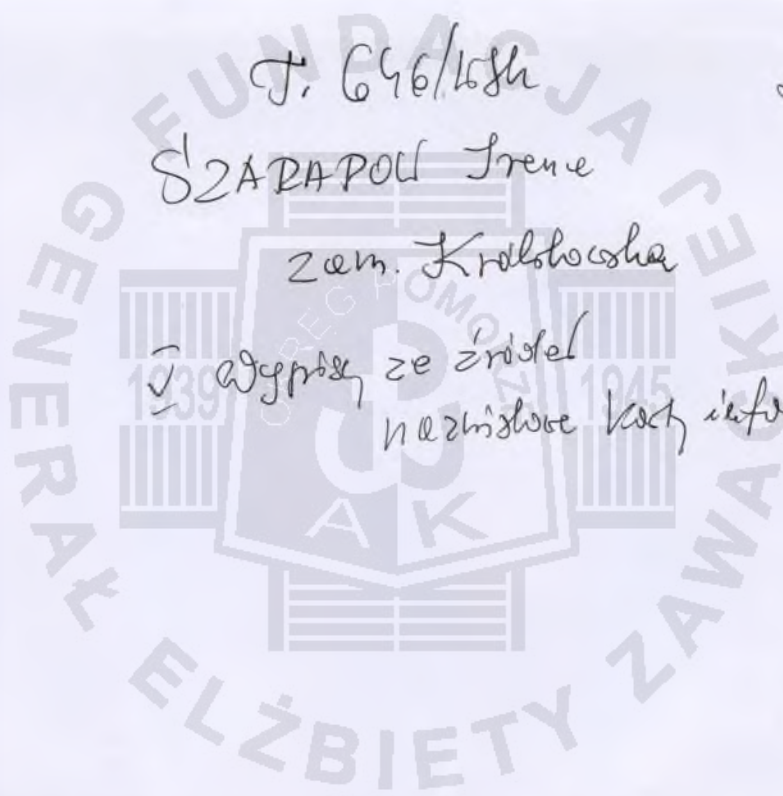 T. 646/WSK
SZARAPOW Irena
zam. Królikowska
V Wypisy ze źródeł
nazwiskowe karty info
FUNDACJA GENERAŁ ELŻBIETY ZAWACKIEJ
1939 1945
OKRĘG POMORZE
AK